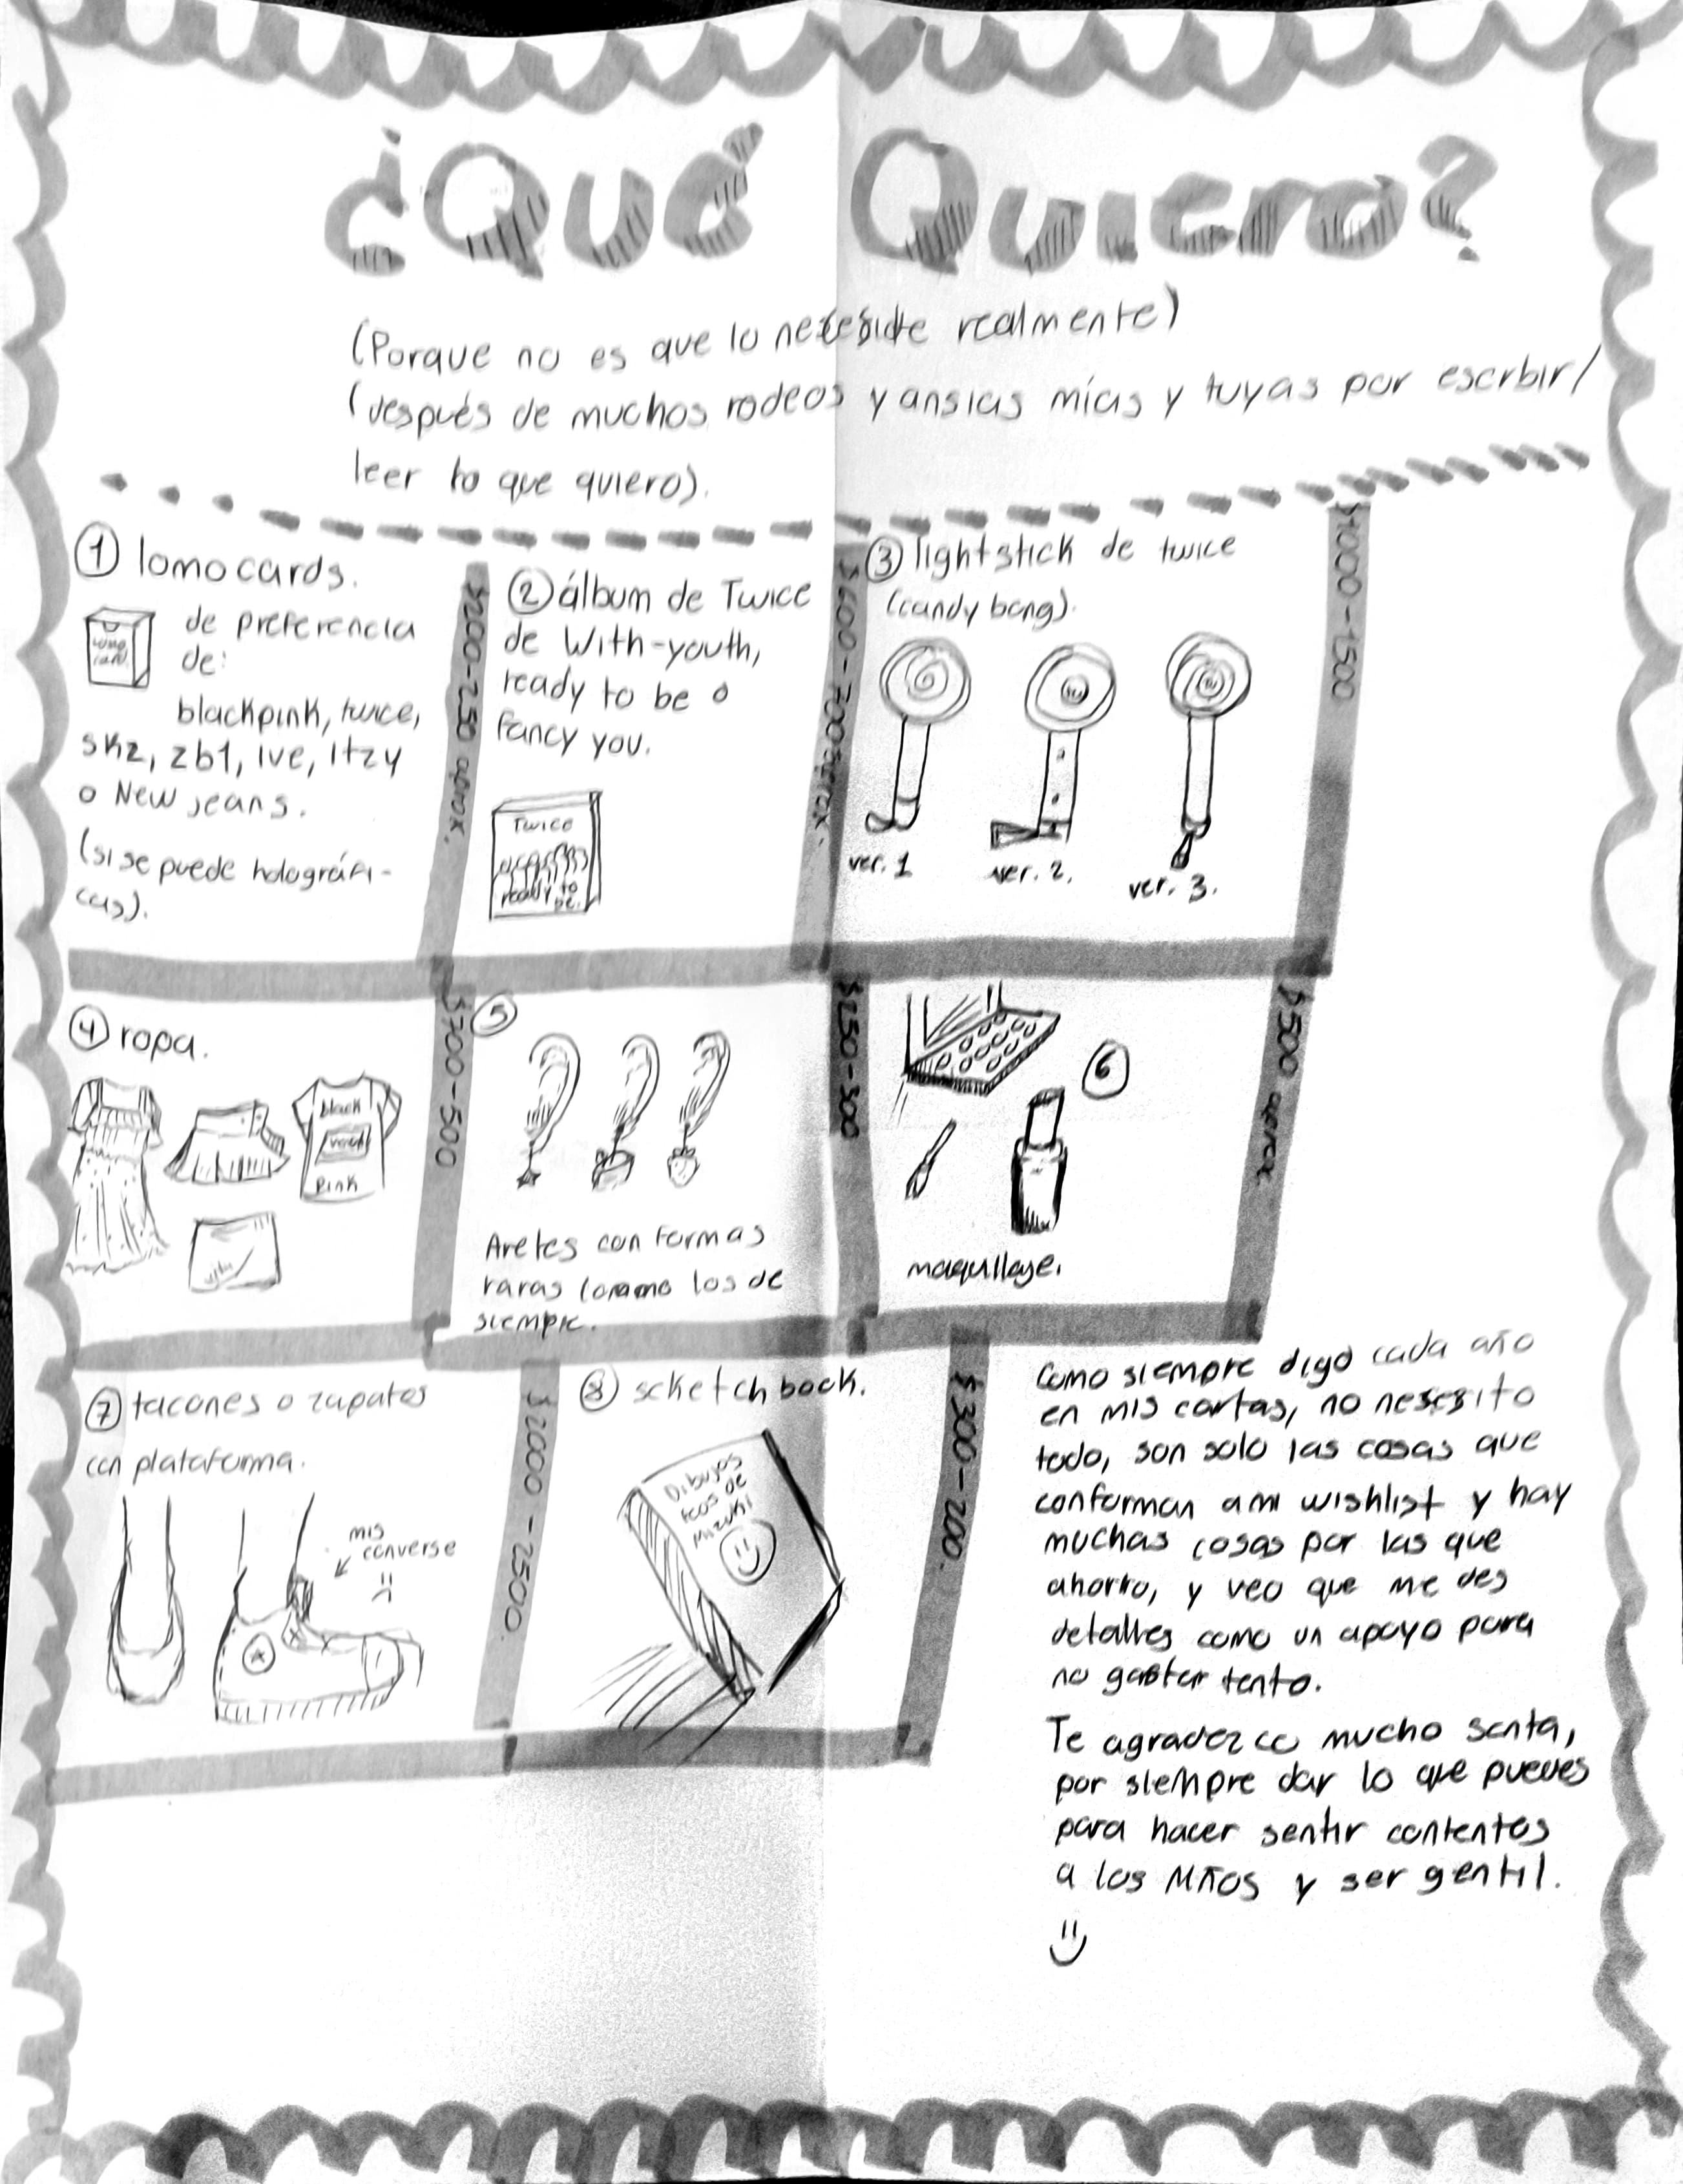 ¿Qué Quiero?
(Porque no es que lo necesite realmente)
(después de muchos rodeos y ansias mías y tuyas por escrbir/
leer lo que quiero).
① lomocards.
lomo
card.
de preferencia
de:
blackpink, twice,
skz, zb1, ive, itzy
o New jeans.
(si se puede holográfi-
cas).
$200-250 aprox.
② álbum de Twice
de With-youth,
ready to be o
fancy you.
Twice
ready to
be.
$600-700 aprox.
③ lightstick de twice
(candy bong).
ver. 1
ver. 2.
ver. 3.
$1000-1500
④ ropa.
black
pink
$700-500
⑤
Aretes con formas
raras como los de
siempre.
$250-300
⑥
maquillaje.
$500 aprox
⑦ tacones o zapatos
con plataforma.
mis
converse
$2000-2500.
⑧ scketchbook.
Dibujos
feos de
Mizuki
$300-200.
Como siempre digo cada año
en mis cartas, no nescesito
todo, son solo las cosas que
conforman a mi wishlist y hay
muchas cosas por las que
ahorro, y veo que me des
detalles como un apoyo para
no gastar tanto.
Te agradezco mucho santa,
por siempre dar lo que puedes
para hacer sentir contentos
a los niños y ser gentil.